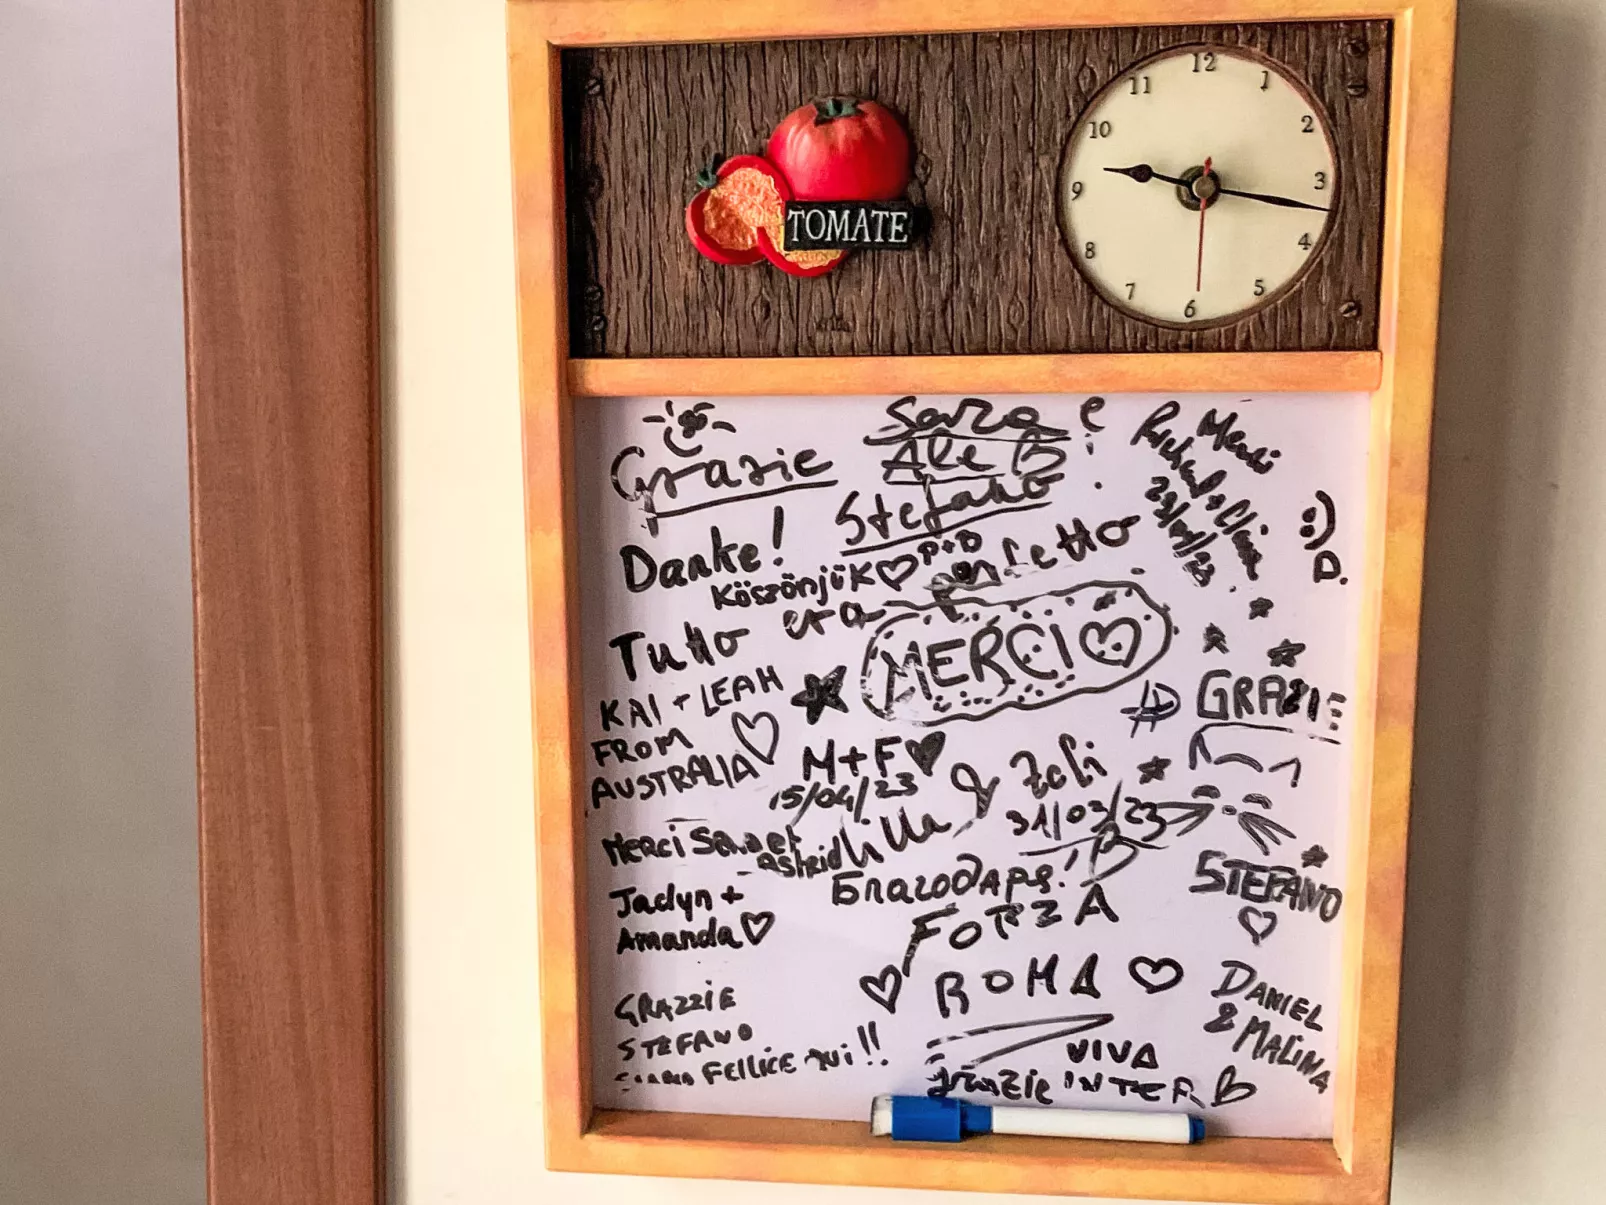 12
1
2
3
4
5
6
7
8
9
10
11
TOMATE
Grazie
Sara e
Ale B
Stefano
Merci
Richard & Cline
23/04/23
:) D.
Danke!
Köszönjük ♡ D+D
Tutto era perfetto
MERCI ♡
KAI + LEAH
FROM
AUSTRALIA ♡
M+F ♥
15/04/23
Lilla & Zoli
31/03/23
GRAZIE
STEFANO
♡
Merci
Astrid
Благодаря!
Jaclyn +
Amanda ♡
FORZA
♡ ROMA ♡
GRAZZIE
STEFANO
FELLICE QUI!!
DANIEL
& MALINA
VIVA
Grazie INTER